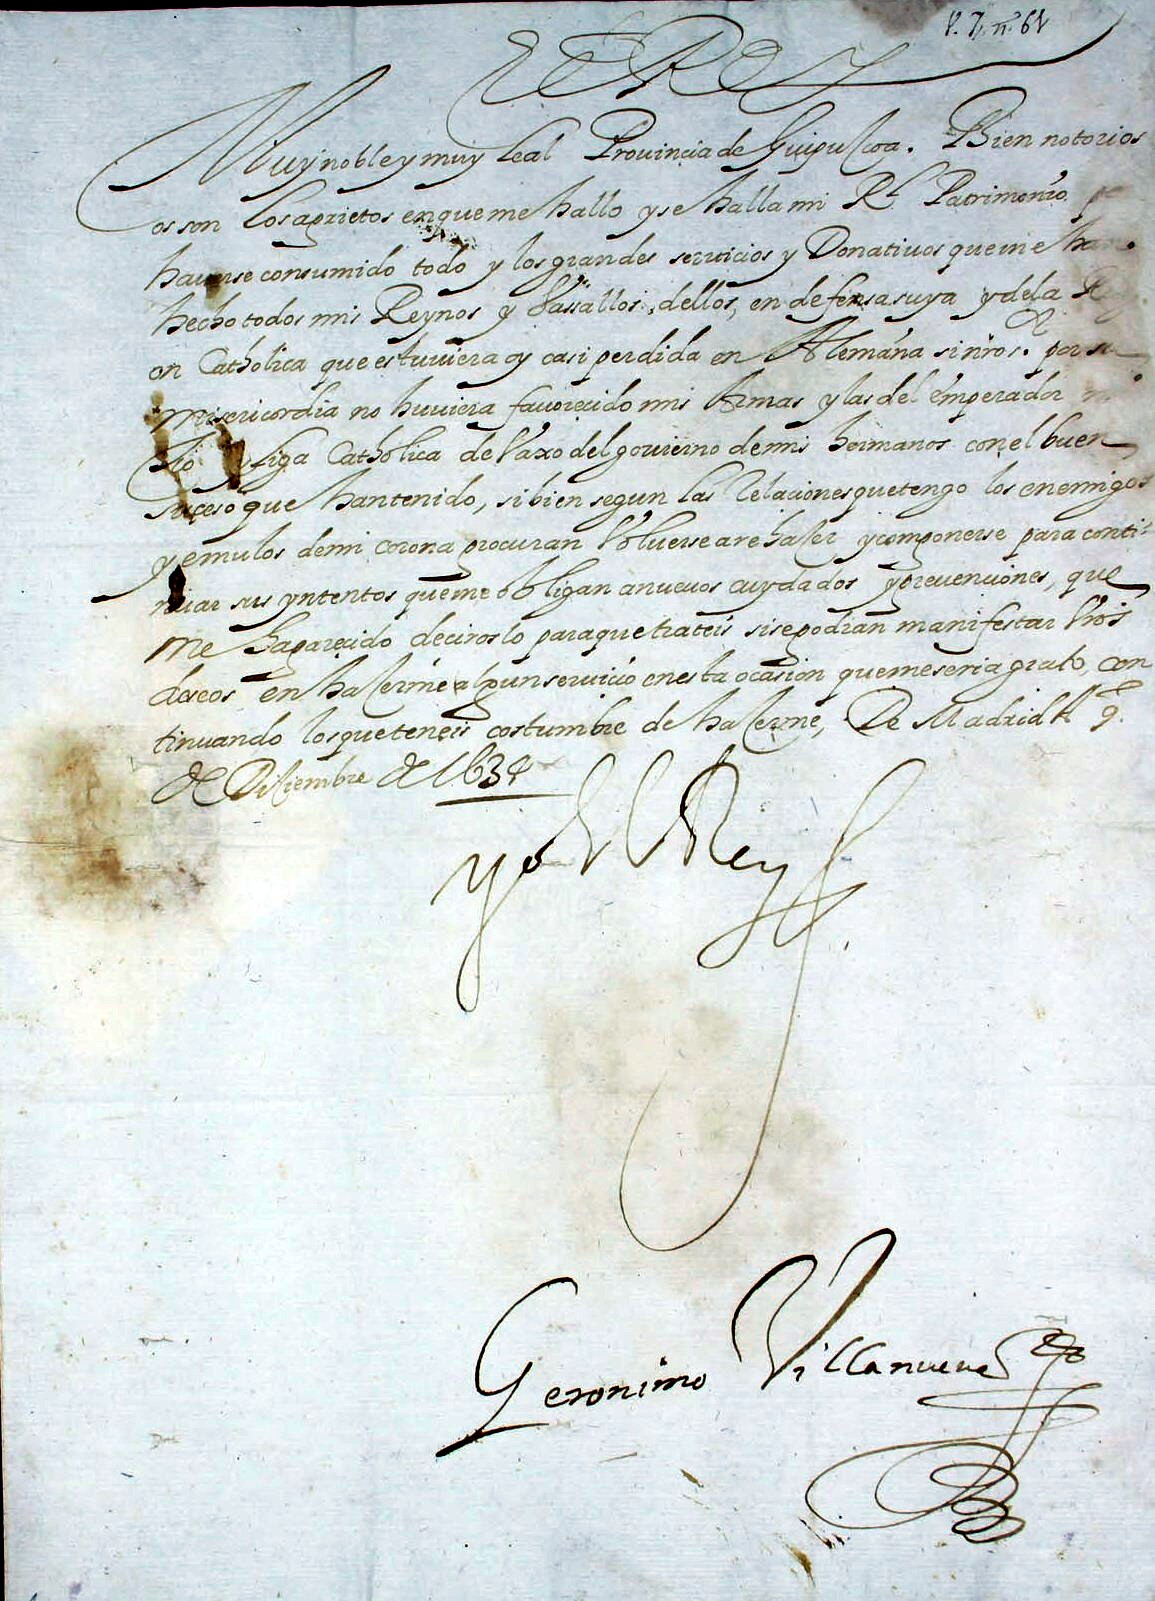 V. 7, n. 61
El Rey
Muy noble y muy leal Provincia de Guipuzcoa. Bien notorios
os son los aprietos en que me hallo y se halla mi Rl. Patrimonio
haverse consumido todo y los grandes servicios y Donativos que me han
hecho todos mis Reynos y Vasallos dellos, en defensa suya y de la
on Catholica que estuviera oy casi perdida en Alemana si nro sr. por su
misericordia no huviera favorecido mis Armas y las del emperador mi
tio y liga Catholica de vaxo del govierno de mis hermanos con el buen
suçeso que han tenido, si bien segun las relaciones que tengo los enemigos
y emulos de mi corona procuran volverse a rehaçer y componerse para conti-
nuar sus yntentos que me obligan a nuevos cuydados y prevenciones, que
me ha pareçido deciroslo para que trateis si se podian manifestar vros
deseos en haçerme algun servicio en esta ocasion que me seria grato, con
tinuando los que teneis costumbre de haçerme, De Madrid A 9.
de Diziembre de 1634
yo el Rey
Geronimo Villanueva